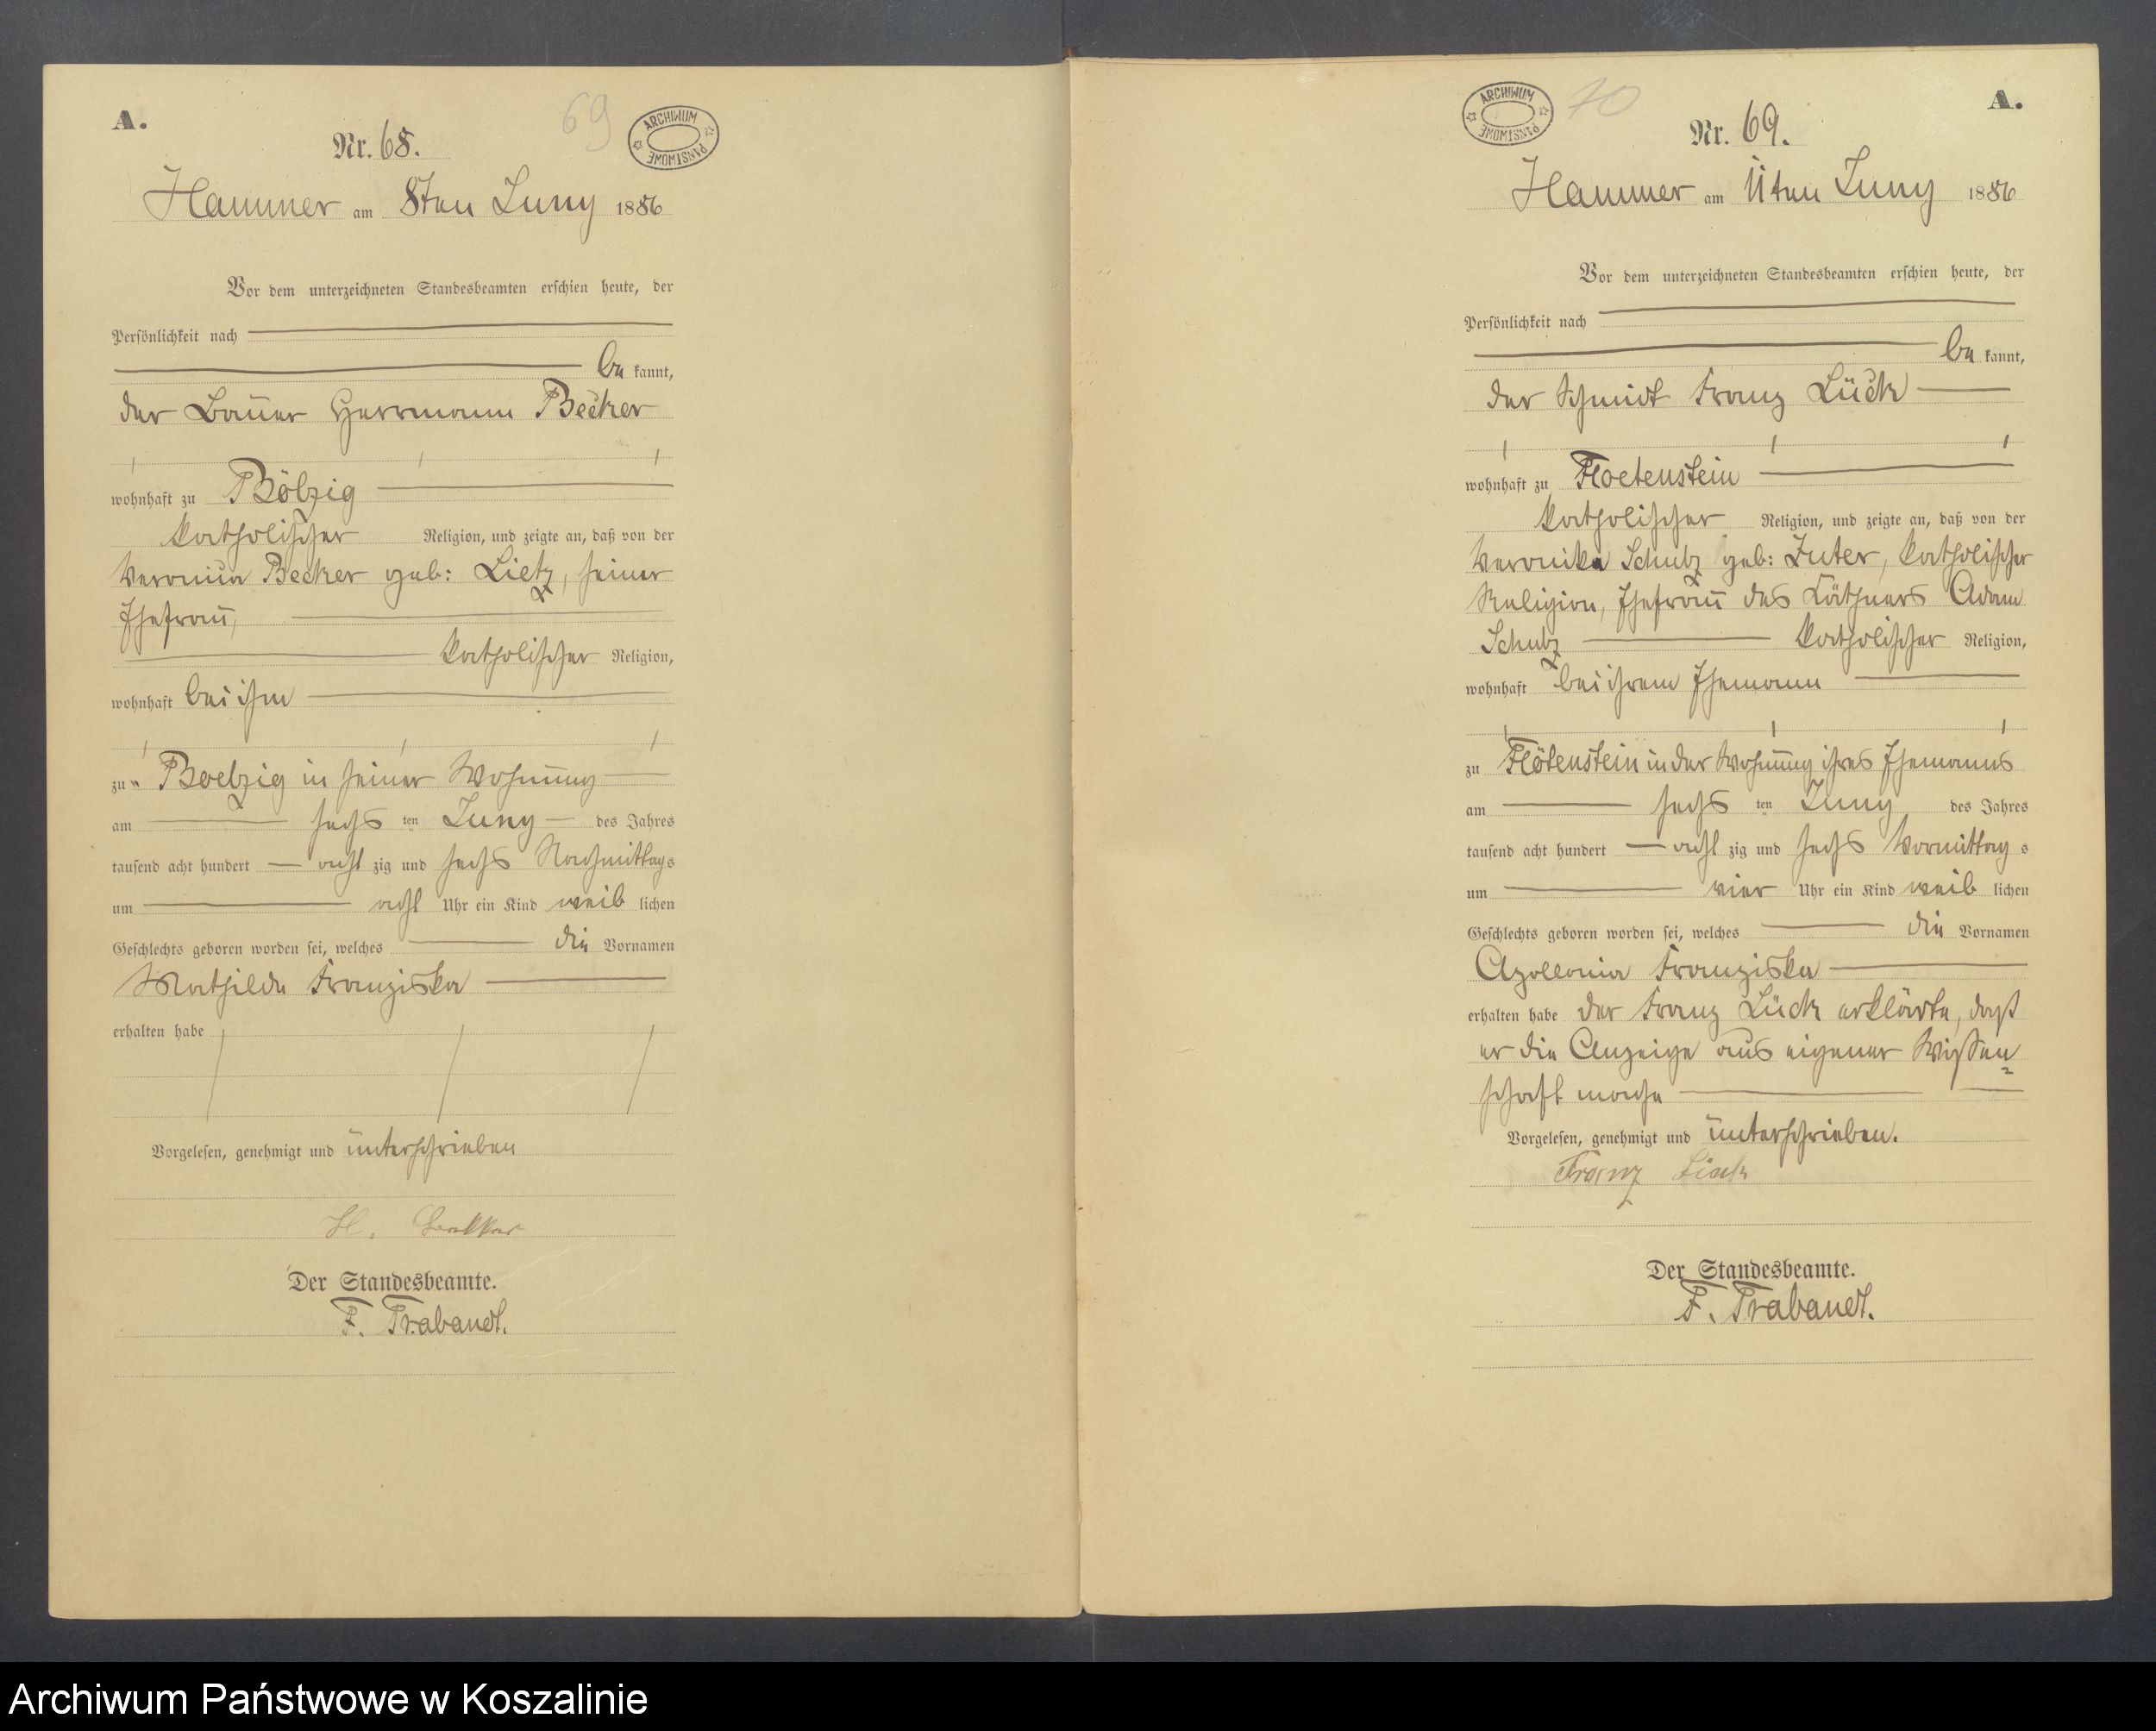 A.
69
ARCHIWUM PAŃSTWOWE
Nr. 68.
Hammer am 8ten Juny 1886
Vor dem unterzeichneten Standesbeamten erschien heute, der
Persönlichkeit nach
be kannt,
der Bauer Herrmann Becker
wohnhaft zu Bölzig
katholischer Religion, und zeigte an, daß von der
Veronica Becker geb: Lietz, seiner
Ehefrau,
katholischer Religion,
wohnhaft bei ihm
zu Boelzig in seiner Wohnung
am sechs ten Juny des Jahres
tausend acht hundert acht zig und sechs Nachmittags
um acht Uhr ein Kind weib lichen
Geschlechts geboren worden sei, welches die Vornamen
Mathilde Franziska
erhalten habe
Vorgelesen, genehmigt und unterschrieben
H. Bekker
Der Standesbeamte.
F. Trabandt.
ARCHIWUM PAŃSTWOWE
70
A.
Nr. 69.
Hammer am 11ten Juny 1886
Vor dem unterzeichneten Standesbeamten erschien heute, der
Persönlichkeit nach
be kannt,
der Schmidt Franz Lück
wohnhaft zu Floetenstein
katholischer Religion, und zeigte an, daß von der
Veronika Schulz geb: Juter, katholischer
Religion, Ehefrau des Käthners Adam
Schulz katholischer Religion,
wohnhaft bei ihrem Ehemann
zu Flötenstein in der Wohnung ihres Ehemanns
am sechs ten Juny des Jahres
tausend acht hundert acht zig und sechs Vormittag s
um vier Uhr ein Kind weib lichen
Geschlechts geboren worden sei, welches die Vornamen
Apollonia Franziska
erhalten habe der Franz Lück erklärte, daß
er die Anzeige aus eigener Wissen=
schaft mache
Vorgelesen, genehmigt und unterschrieben.
Franz Lück
Der Standesbeamte.
F. Trabandt.
Archiwum Państwowe w Koszalinie